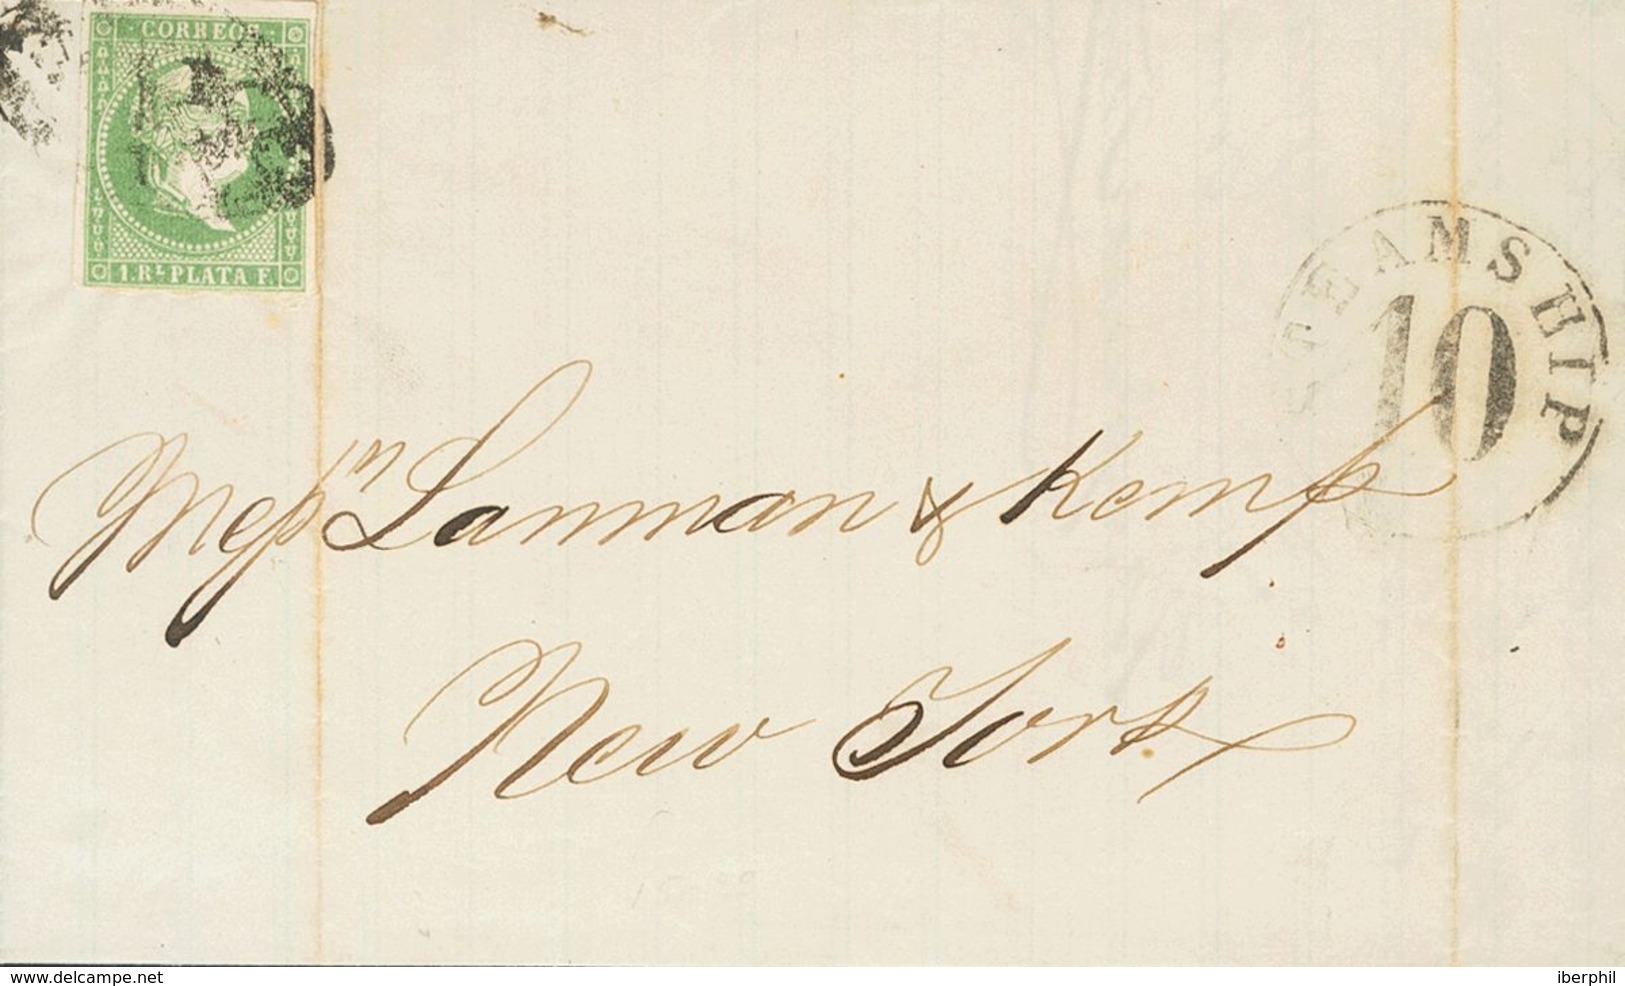 CORREOS
1 RL PLATA F.
STEAMSHIP
10
Messrs Lanman & Kemp
New York
www.delcampe.net
iberphil